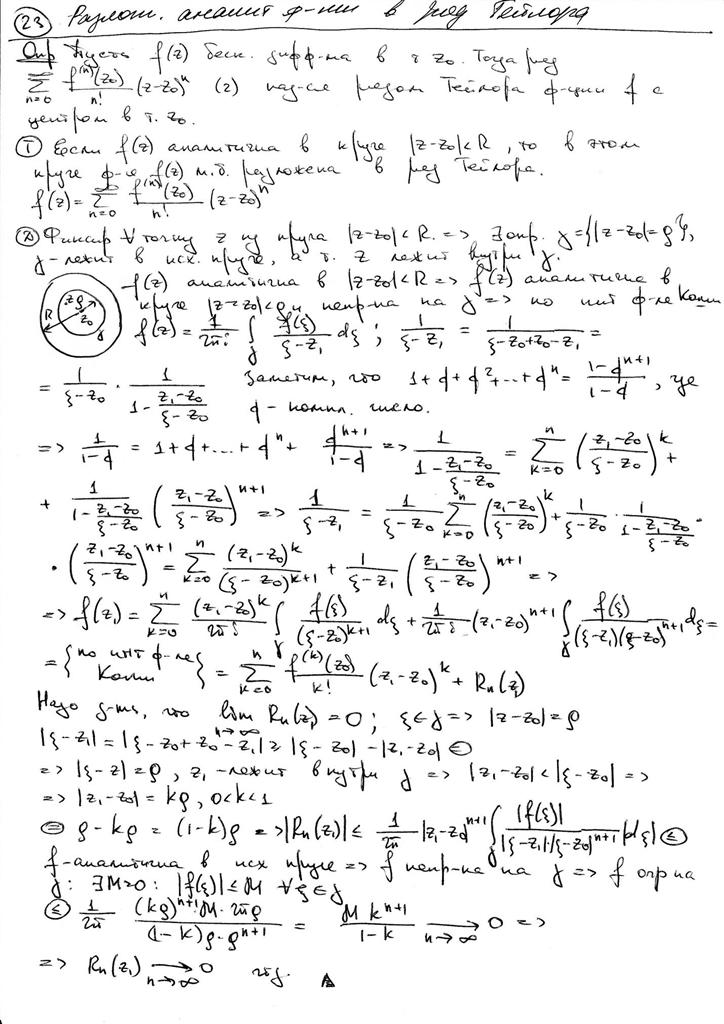 (23) Разлож. аналит ф-ции в ряд Тейлора
Опр Пусть f(z) беск. дифф-ма в т z₀. Тогда ряд
∑_{n=0}^{∞} f^{(n)}(z₀)/n! (z-z₀)ⁿ (2) наз-ся рядом Тейлора ф-ции f с
центром в т. z₀.
(T) Если f(z) аналитична в круге |z-z₀|<R, то в этом
круге ф-я f(z) м.б. разложена в ряд Тейлора.
f(z)=∑_{n=0}^{∞} f^{(n)}(z₀)/n! (z-z₀)ⁿ
(Д) Фиксир ∀ точку z из круга |z-z₀|<R. => ∃ окр. γ={|z-z₀|=ρ},
γ-лежит в исх. круге, а т. z лежит внутри γ.
f(z) аналитична в |z-z₀|<R => f(z) аналитична в
круге |z-z₀|<ρ и непр-на на γ => по инт ф-ле Коши
R zρ z₀ γ
f(z)=1/2πi ∫_γ f(ξ)/(ξ-z₁) dξ ; 1/(ξ-z₁) = 1/(ξ-z₀+z₀-z₁) =
= 1/(ξ-z₀) · 1/(1-(z₁-z₀)/(ξ-z₀)) Заметим, что 1+q+q²+...+qⁿ = (1-qⁿ⁺¹)/(1-q), где
q-компл. число.
=> 1/(1-q) = 1+q+...+qⁿ + qⁿ⁺¹/(1-q) => 1/(1-(z₁-z₀)/(ξ-z₀)) = ∑_{k=0}^{n} ((z₁-z₀)/(ξ-z₀))ᵏ +
+ 1/(1-(z₁-z₀)/(ξ-z₀)) ((z₁-z₀)/(ξ-z₀))ⁿ⁺¹ => 1/(ξ-z₁) = 1/(ξ-z₀) ∑_{k=0}^{n} ((z₁-z₀)/(ξ-z₀))ᵏ + 1/(ξ-z₀) · 1/(1-(z₁-z₀)/(ξ-z₀)) ·
· ((z₁-z₀)/(ξ-z₀))ⁿ⁺¹ = ∑_{k=0}^{n} (z₁-z₀)ᵏ/(ξ-z₀)ᵏ⁺¹ + 1/(ξ-z₁) ((z₁-z₀)/(ξ-z₀))ⁿ⁺¹ =>
=> f(z₁) = ∑_{k=0}^{n} (z₁-z₀)ᵏ/2πi ∫_γ f(ξ)/(ξ-z₀)ᵏ⁺¹ dξ + 1/2πi (z₁-z₀)ⁿ⁺¹ ∫_γ f(ξ)/((ξ-z₁)(ξ-z₀)ⁿ⁺¹) dξ =
= {по инт ф-ле Коши} = ∑_{k=0}^{n} f^{(k)}(z₀)/k! (z₁-z₀)ᵏ + Rn(z₁)
Надо д-ть, что lim_{n→∞} Rn(z₁) = 0 ; ξ∈γ => |z-z₀|=ρ
|ξ-z₁| = |ξ-z₀+z₀-z₁| ≥ |ξ-z₀|-|z₁-z₀| (=)
=> |ξ-z|=ρ, z₁-лежит внутри γ => |z₁-z₀|<|ξ-z₀| =>
=> |z₁-z₀|=kρ, 0<k<1
(=) ρ-kρ = (1-k)ρ => |Rn(z₁)| ≤ 1/2π |z₁-z₀|ⁿ⁺¹ ∫_γ |f(ξ)|/(|ξ-z₁|·|ξ-z₀|ⁿ⁺¹) |dξ| (≤)
f-аналитична в исх круге => f непр-на на γ => f огр на
γ: ∃M>0: |f(ξ)| ≤ M ∀ξ∈γ
(≤) 1/2π (kρ)ⁿ⁺¹·M·2πρ/((1-k)ρ·ρⁿ⁺¹) = M kⁿ⁺¹/(1-k) →_{n→∞} 0 =>
=> Rn(z₁) →_{n→∞} 0 чтд.